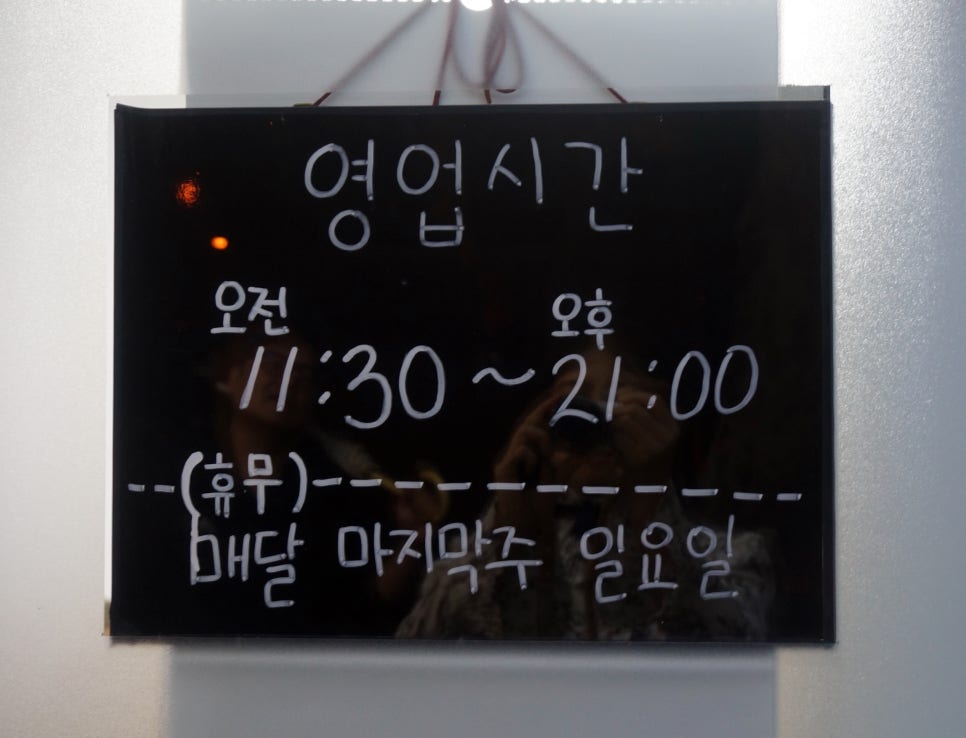 영업시간
오전 오후
11:30 ~ 21:00
--(휴무)----------
매달 마지막주 일요일